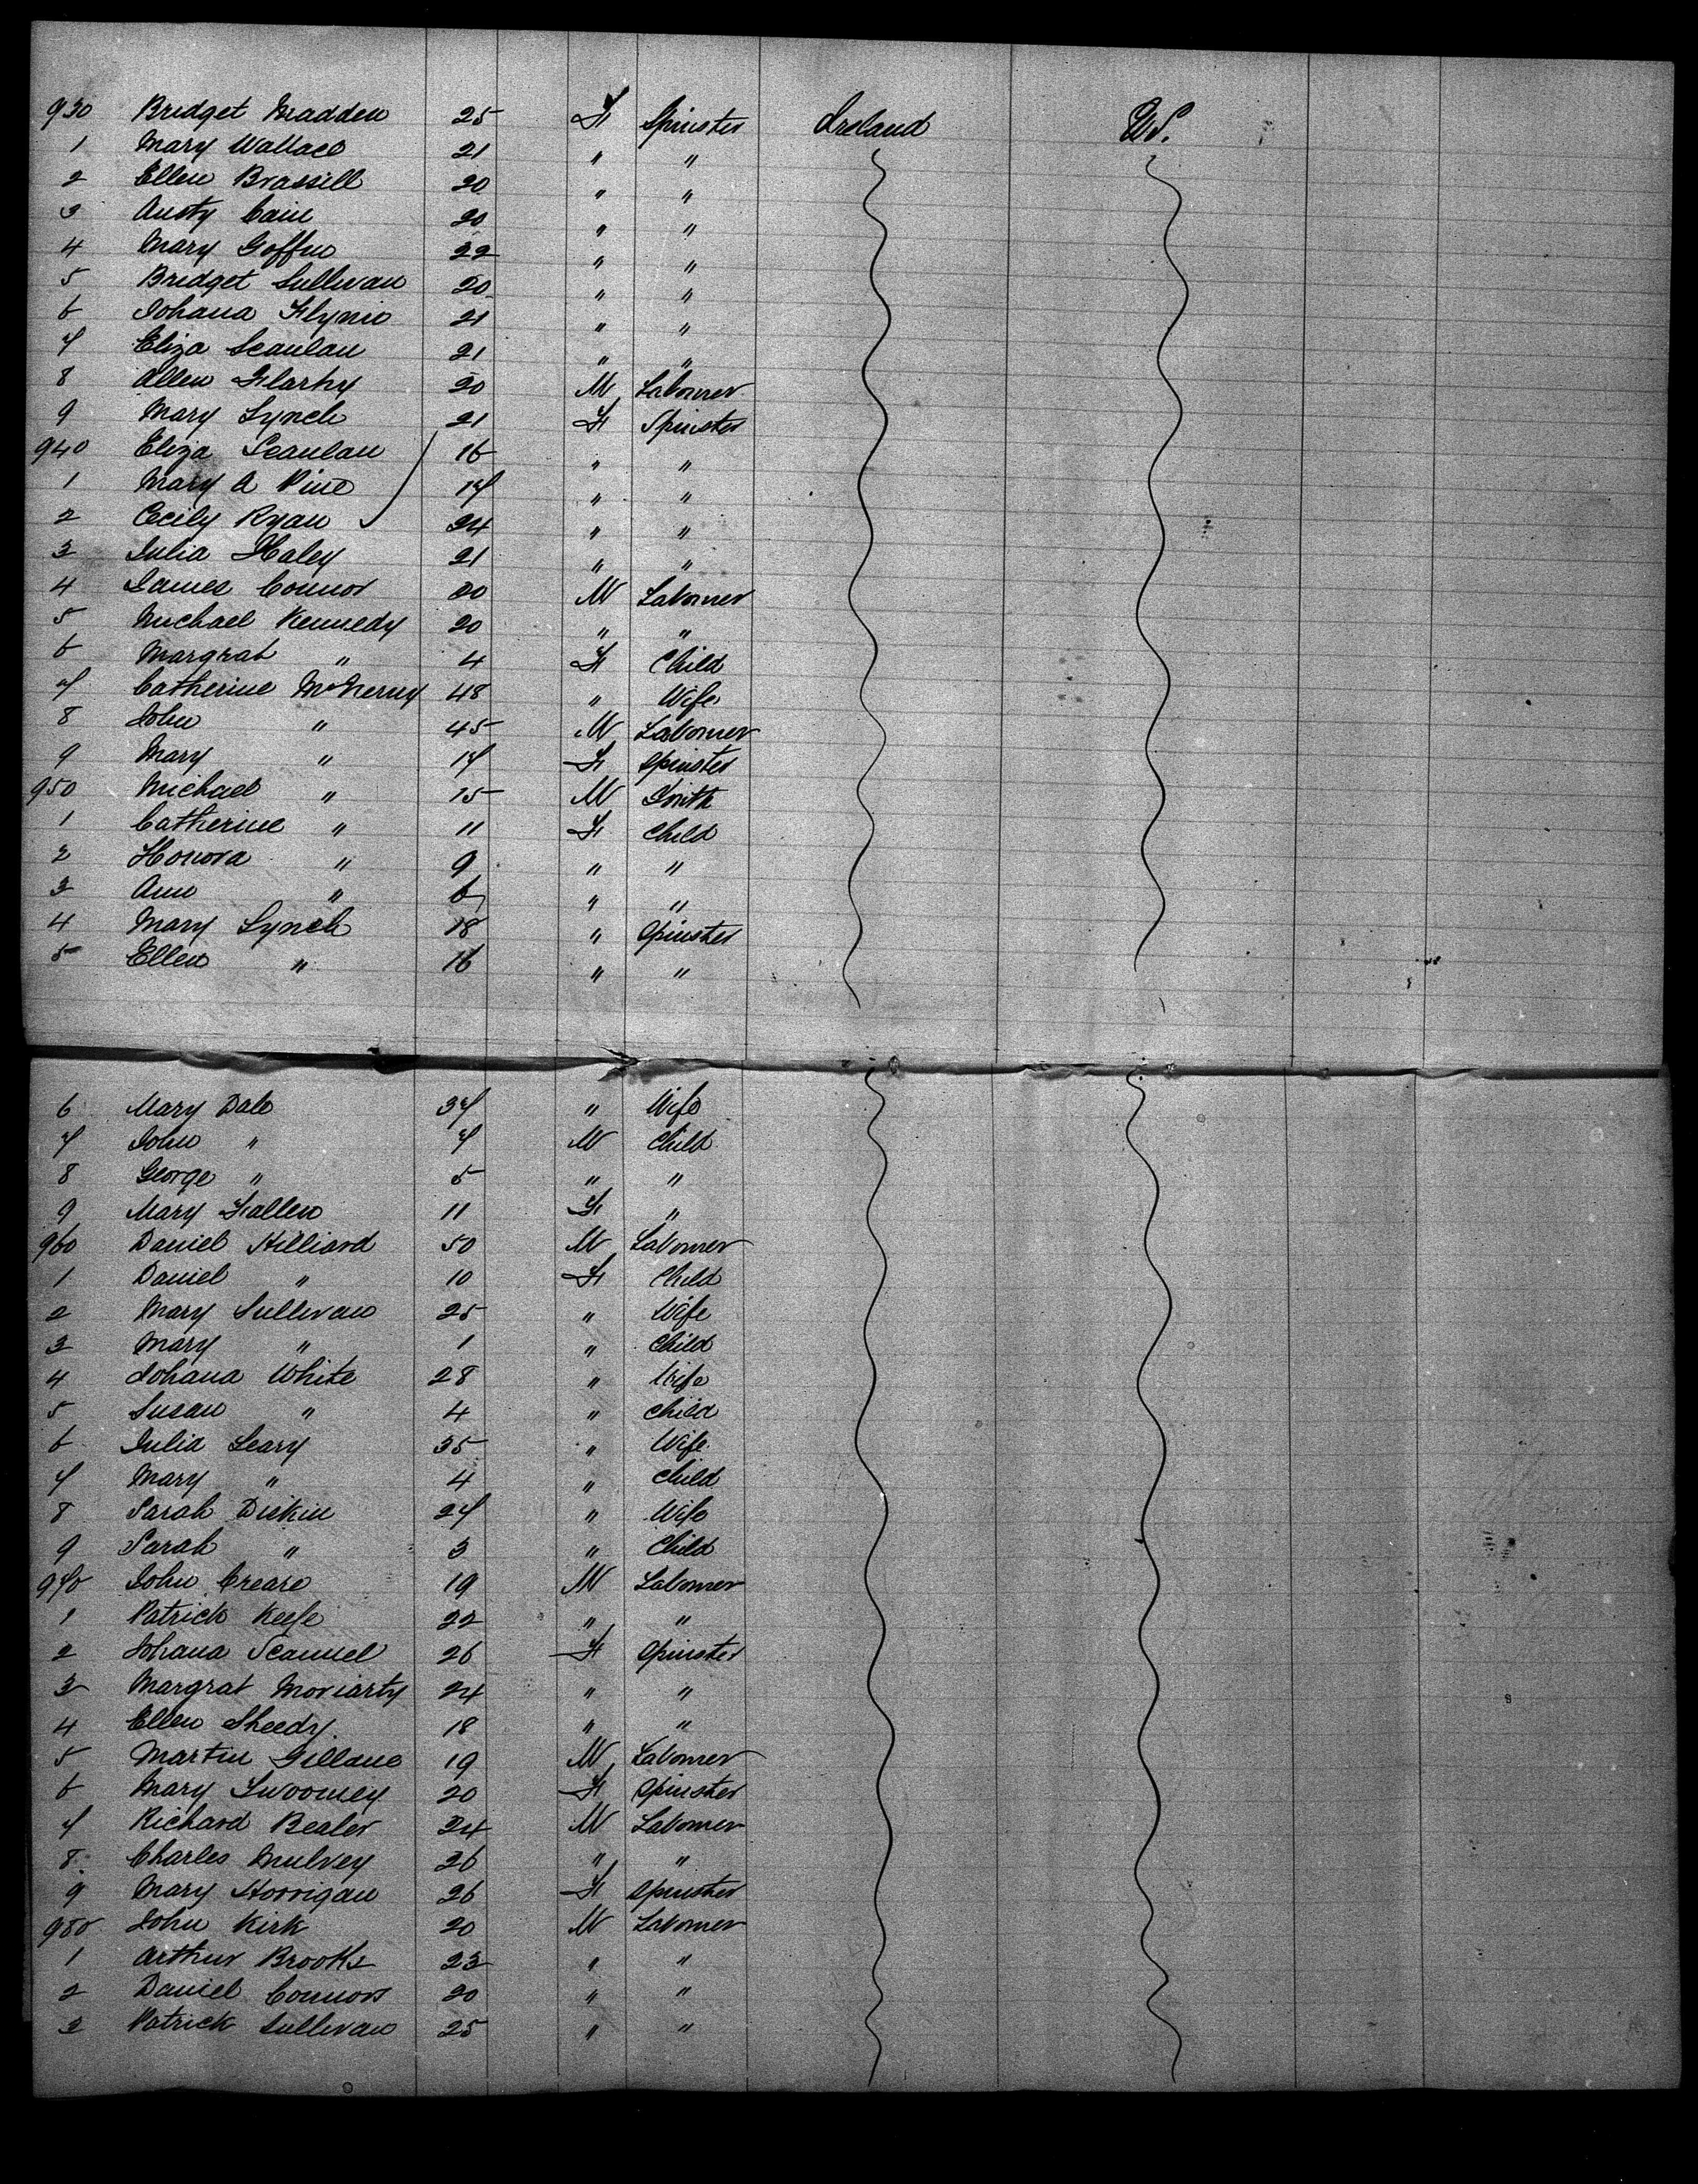 930 Bridget Madden 25 F Spinster Ireland US.
1 Mary Wallace 21 " "
2 Ellen Brassill 20 " "
3 Austy Cain 20 " "
4 Mary Goffne 22 " "
5 Bridget Sullivan 20 " "
6 Johana Flynn 21 " "
7 Eliza Scanlan 21 " "
8 Allen Flarhy 20 M Labourer
9 Mary Lynch 21 F Spinster
940 Eliza Scanlan 16 " "
1 Mary A Pine 17 " "
2 Cecily Ryan 24 " "
3 Julia Haley 21 " "
4 James Connor 20 M Labourer
5 Michael Kennedy 20 " "
6 Margrat " 4 F Child
7 Catherine McNerny 48 " Wife
8 John " 45 M Labourer
9 Mary " 17 F Spinster
950 Michael " 15 M Smith
1 Catherine " 11 F Child
2 Honora " 9 " "
3 Ann " 6 " "
4 Mary Lynch 18 " Spinster
5 Ellen " 16 " "
6 Mary Dale 37 " Wife
7 John " 7 M Child
8 George " 5 " "
9 Mary Fallen 11 F "
960 Daniel Hilliard 50 M Labourer
1 Daniel " 10 F Child
2 Mary Sullivan 25 " Wife
3 Mary " 1 " Child
4 Johana White 28 " Wife
5 Susan " 4 " Child
6 Julia Leary 35 " Wife
7 Mary " 4 " Child
8 Sarah Diskin 27 " Wife
9 Sarah " 3 " Child
970 John Creare 19 M Labourer
1 Patrick Keefe 22 " "
2 Johana Scannel 26 F Spinster
3 Margrat Moriarty 24 " "
4 Ellen Sheedy 18 " "
5 Martin Gillane 19 M Labourer
6 Mary Swoomey 20 F Spinster
7 Richard Bealer 24 M Labourer
8 Charles Mulvey 26 " "
9 Mary Horrigan 26 F Spinster
980 John Kirk 20 M Labourer
1 Arthur Brooks 23 " "
2 Daniel Connors 20 " "
3 Patrick Sullivan 25 " "